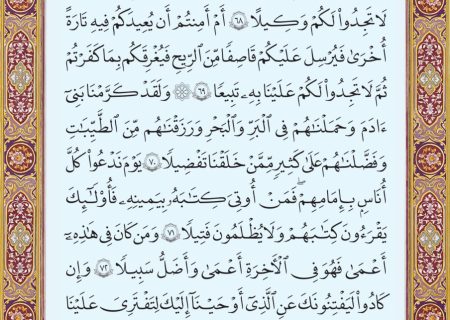 لَا تَجِدُوا۟ لَكُمْ وَكِيلًا ٦٨ أَمْ أَمِنتُمْ أَن يُعِيدَكُمْ فِيهِ تَارَةً
أُخْرَىٰ فَيُرْسِلَ عَلَيْكُمْ قَاصِفًا مِّنَ ٱلرِّيحِ فَيُغْرِقَكُم بِمَا كَفَرْتُمْ
ثُمَّ لَا تَجِدُوا۟ لَكُمْ عَلَيْنَا بِهِۦ تَبِيعًا ٦٩ ۞ وَلَقَدْ كَرَّمْنَا بَنِىٓ
ءَادَمَ وَحَمَلْنَٰهُمْ فِى ٱلْبَرِّ وَٱلْبَحْرِ وَرَزَقْنَٰهُم مِّنَ ٱلطَّيِّبَٰتِ
وَفَضَّلْنَٰهُمْ عَلَىٰ كَثِيرٍ مِّمَّنْ خَلَقْنَا تَفْضِيلًا ٧٠ يَوْمَ نَدْعُوا۟ كُلَّ
أُنَاسٍۭ بِإِمَٰمِهِمْ ۖ فَمَنْ أُوتِىَ كِتَٰبَهُۥ بِيَمِينِهِۦ فَأُو۟لَٰٓئِكَ
يَقْرَءُونَ كِتَٰبَهُمْ وَلَا يُظْلَمُونَ فَتِيلًا ٧١ وَمَن كَانَ فِى هَٰذِهِۦٓ
أَعْمَىٰ فَهُوَ فِى ٱلْءَاخِرَةِ أَعْمَىٰ وَأَضَلُّ سَبِيلًا ٧٢ وَإِن
كَادُوا۟ لَيَفْتِنُونَكَ عَنِ ٱلَّذِىٓ أَوْحَيْنَآ إِلَيْكَ لِتَفْتَرِىَ عَلَيْنَا